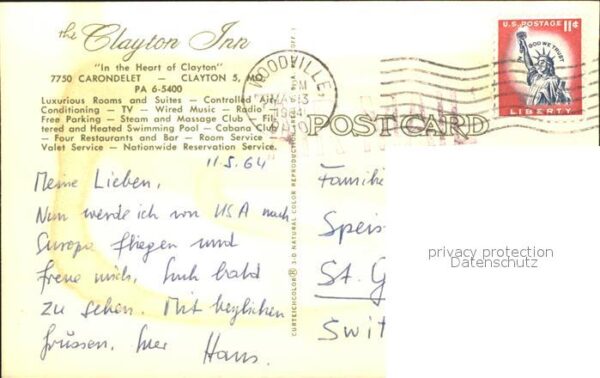 the Clayton Inn
"In the Heart of Clayton"
7750 CARONDELET — CLAYTON 5, MO.
PA 6-5400
Luxurious Rooms and Suites — Controlled Air
Conditioning — TV — Wired Music — Radio
Free Parking — Steam and Massage Club — Fil-
tered and Heated Swimming Pool — Cabana Club
— Four Restaurants and Bar — Room Service —
Valet Service — Nationwide Reservation Service.
11.5.64
Meine Lieben,
Nun werde ich von USA nach
Europa fliegen und
freue mich, Euch bald
zu sehen. Mit herzlichen
Grüssen, Euer Hans.
CURTEICHCOLOR® 3-D NATURAL COLOR REPRODUCTION
WOODVILLE
MAY 13
U.S. POSTAGE 11¢
IN GOD WE TRUST
LIBERTY
POST CARD
Familie
Speis
St. G
Swit
privacy protection
Datenschutz